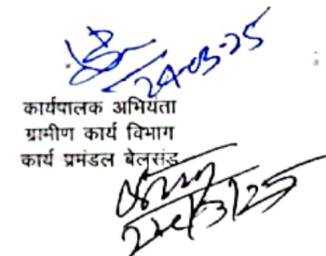 24-03-25
कार्यपालक अभियंता
ग्रामीण कार्य विभाग
कार्य प्रमंडल बेलसंड
24/3/25